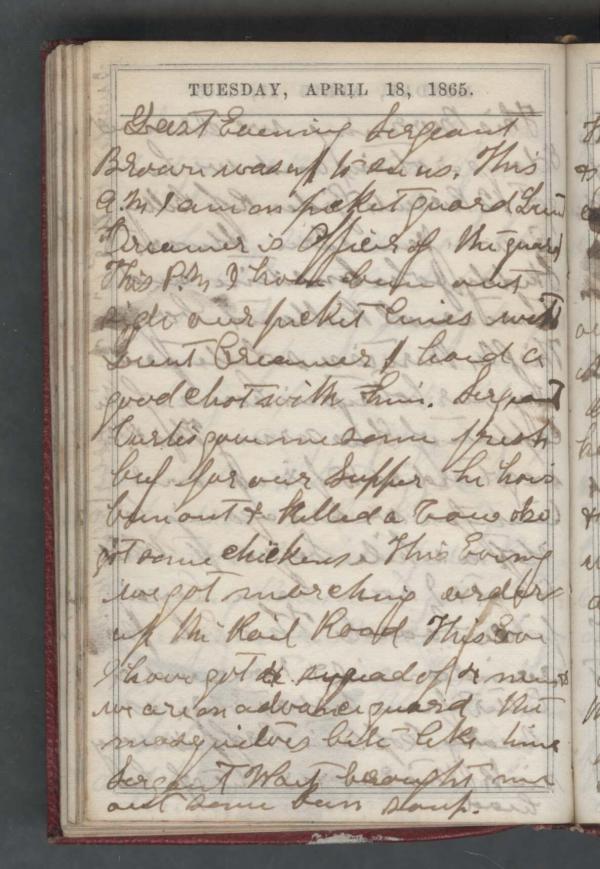 TUESDAY, APRIL 18, 1865.
Last Evening Sergeant
Brown was up to see us. This
A.M I am on picket guard Lieut
Creamer is Officer of the guard
This P.M I have been out
to our picket lines with
Lieut Creamer I had a
good chat with him. Sergeant
Curtis gave me some fresh
beef for our Supper he has
been out & killed a Cow also
got some chickens. This Evening
we got marching orders
up the Rail Road This Eve
I have got a squad of 4 men &
we are on advance guard The
musquitoes bite like time
Sergeant Wait brought me
out some bean soup.